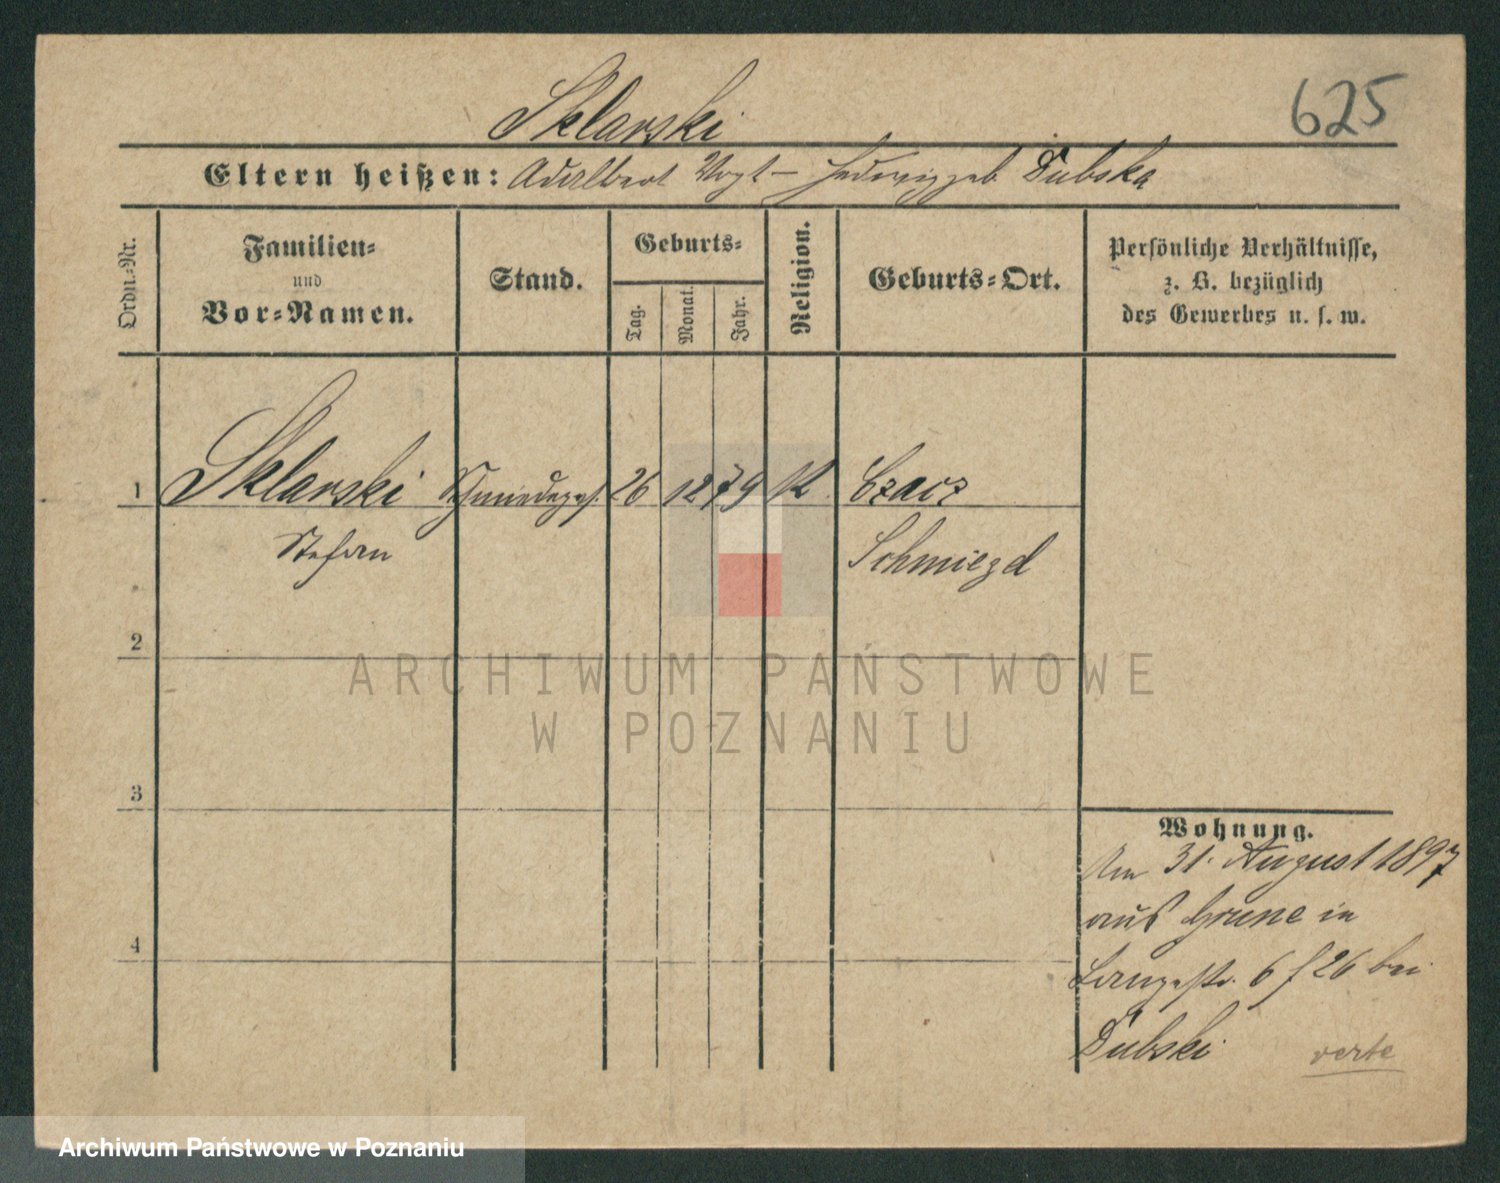 625
Sklarski
Eltern heißen: Adalbert Vogt – Hedwig geb Dubska
Ordn.-Nr.
Familien-
und
Vor-Namen.
Stand.
Geburts-
Tag.
Monat.
Jahr.
Religion.
Geburts-Ort.
Persönliche Verhältnisse,
z. B. bezüglich
des Gewerbes u. s. w.
1 Sklarski Schmiedeges. 26 12 79 K Czacz
Stefan Schmiegel
2
ARCHIWUM PAŃSTWOWE
W POZNANIU
3
Wohnung.
Am 31. August 1897
aus Grune in
4
Langestr. 6 / 26 bei
Dubski
verte
Archiwum Państwowe w Poznaniu